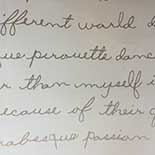 ifferent world d
que pirouette danc
r than myself i
ecause of their g
rabesque passion